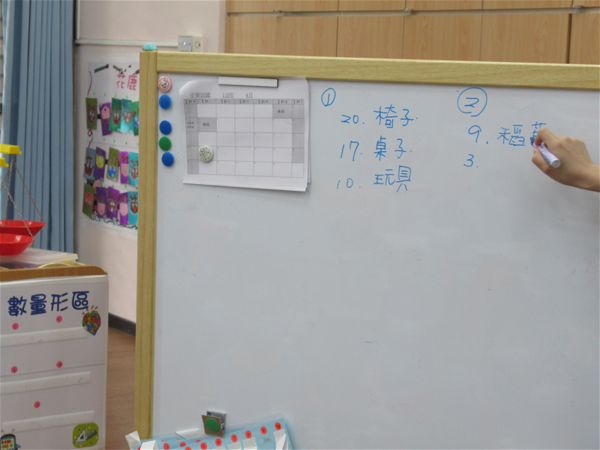 花鹿
①
20. 椅子
17. 桌子
10. 玩具
②
9. 稻草
3.
數量形區